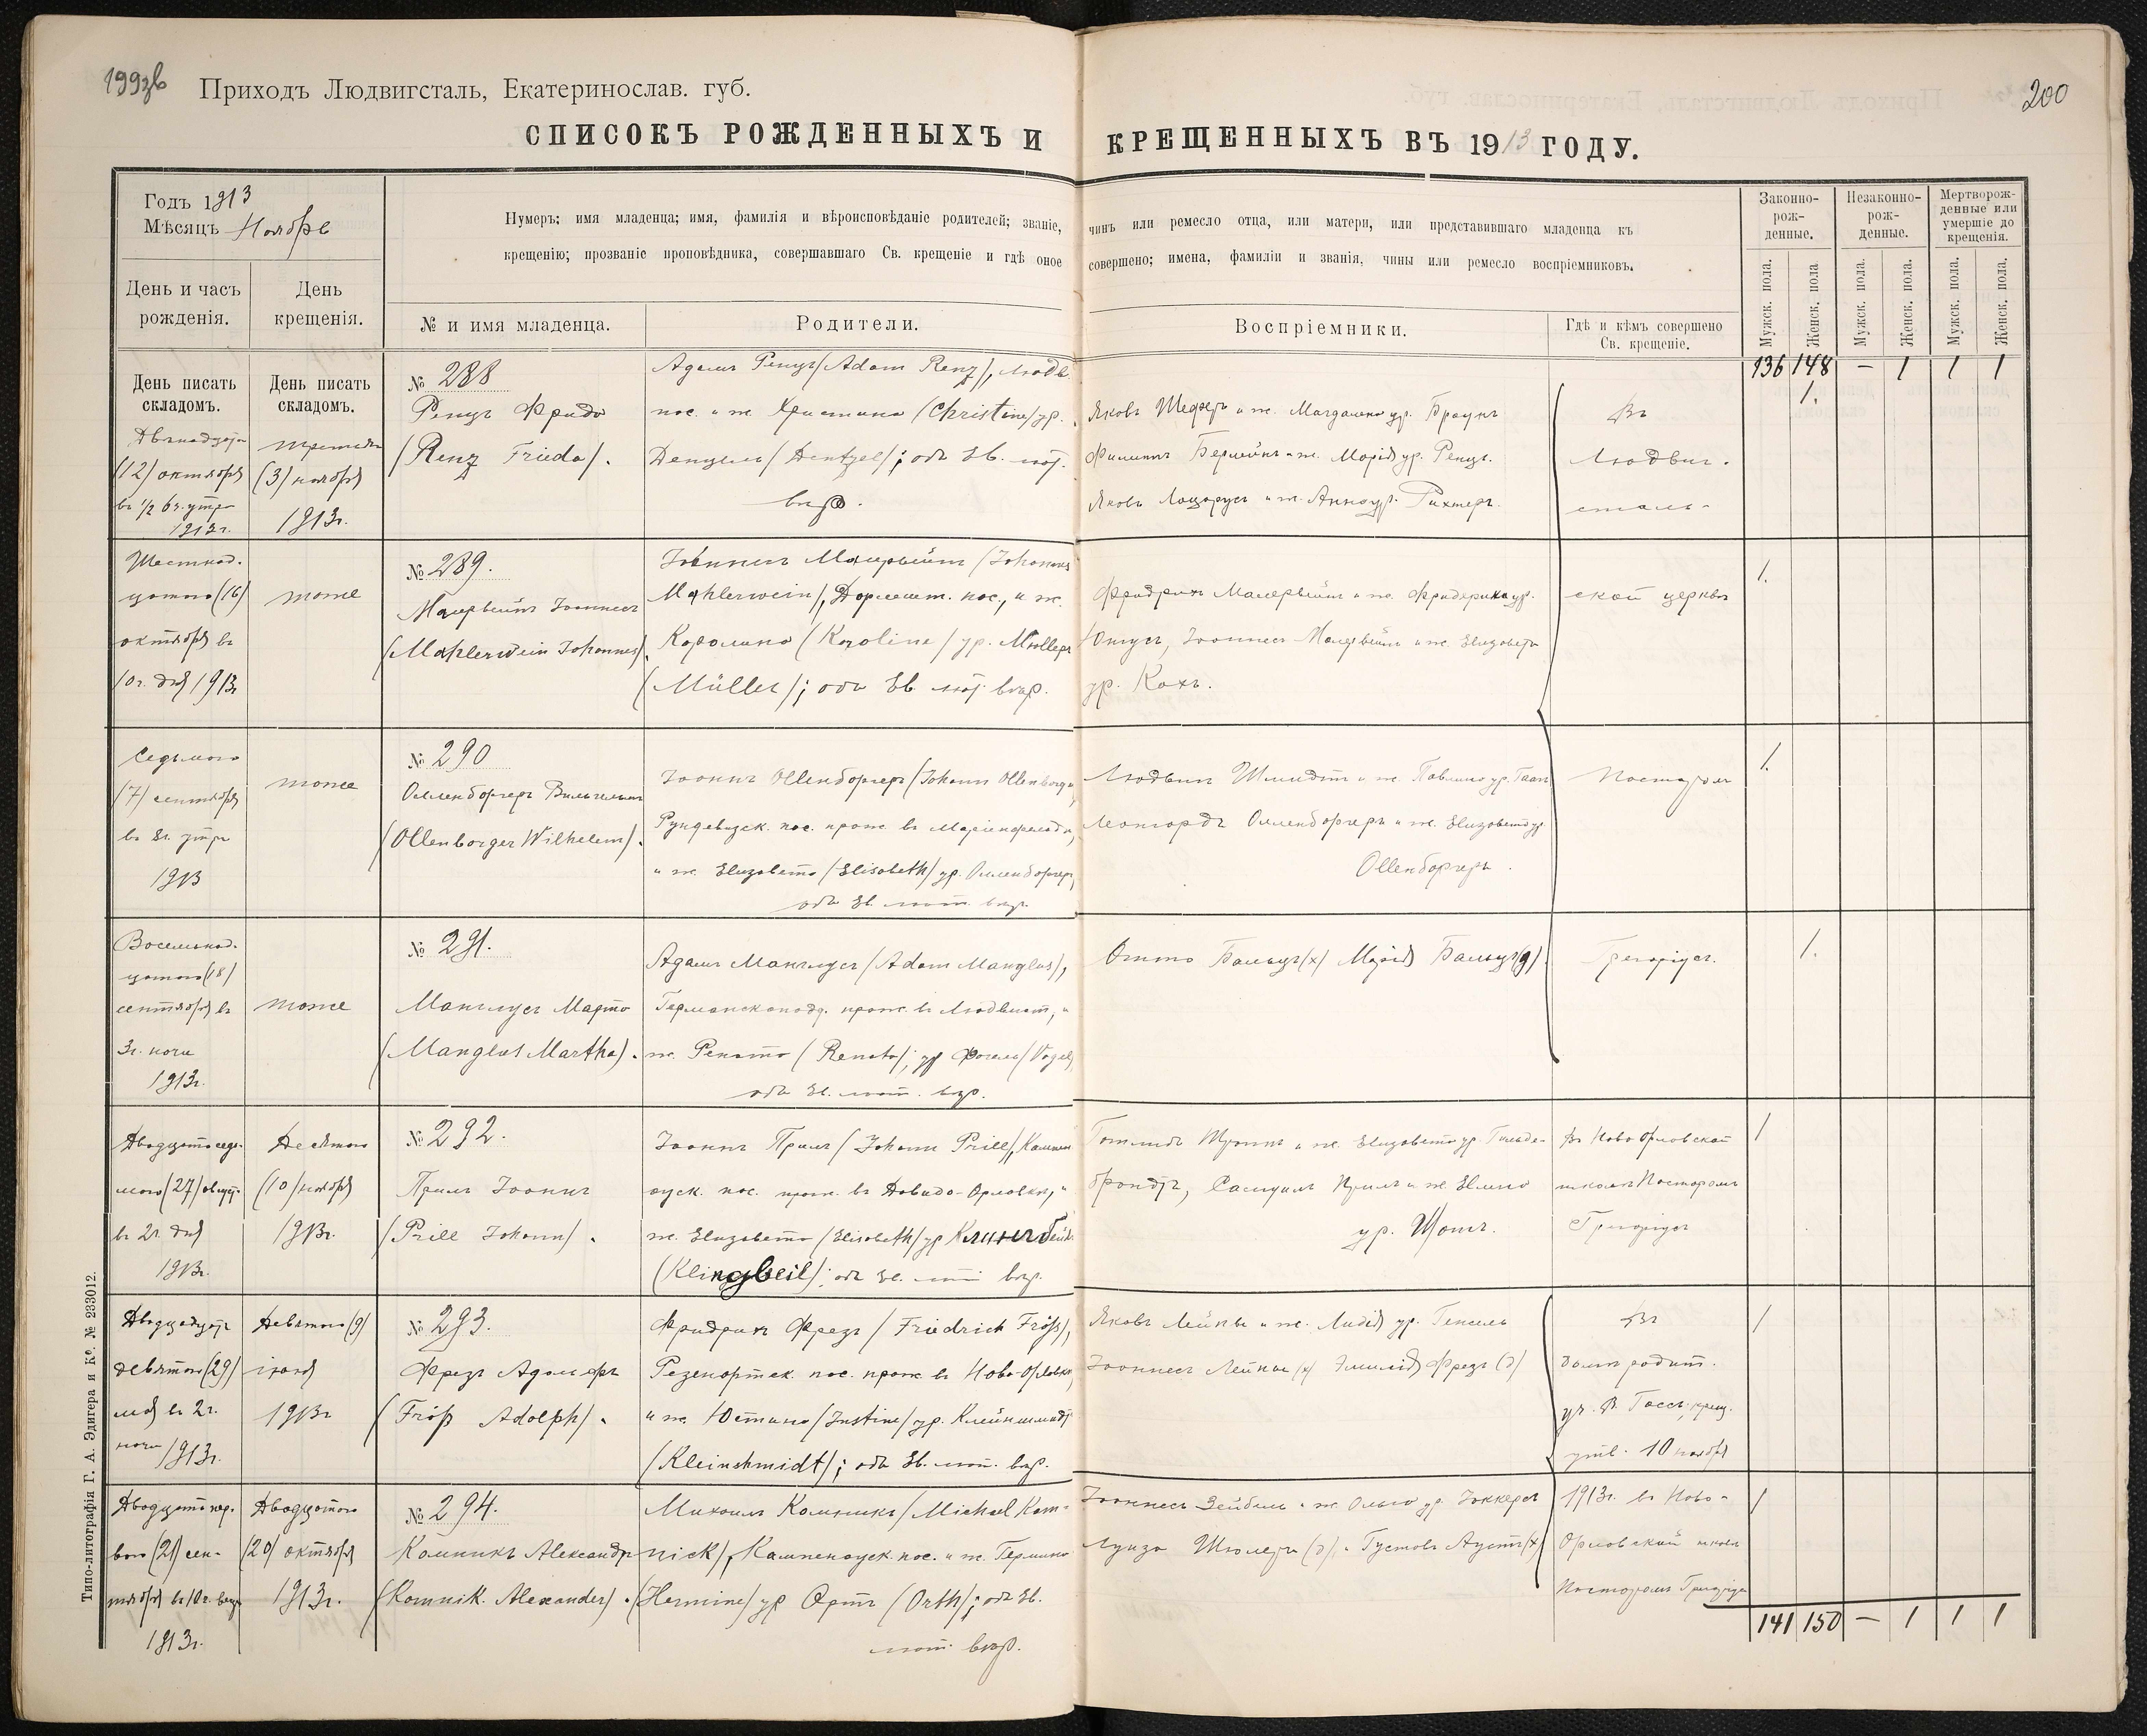 199зв
Приходъ Людвигсталь, Екатеринослав. губ.
200
СПИСОКЪ РОЖДЕННЫХЪ И КРЕЩЕННЫХЪ ВЪ 1913 ГОДУ.
Годъ 1913
Мѣсяцъ Ноябрь
День и часъ рожденія.
День крещенія.
Нумеръ; имя младенца; имя, фамилія и вѣроисповѣданіе родителей; званіе, чинъ или ремесло отца, или матери, или представившаго младенца къ
крещенію; прозваніе проповѣдника, совершавшаго Св. крещеніе и гдѣ оное совершено; имена, фамиліи и званія, чины или ремесло воспріемниковъ.
№ и имя младенца.
Родители.
Воспріемники.
Гдѣ и кѣмъ совершено Св. крещеніе.
Законно-рож-денные.
Незаконно-рож-денные.
Мертворож-денные или умершіе до крещенія.
Мужск. пола.
Женск. пола
Мужск. пола.
Женск. пола.
Мужск. пола.
Женск. пола.
136 148 — 1 1 1
День писать складомъ.
День писать складомъ.
(12) октября
въ ½ 6 ч. утра
1913г.
третьяго
(3) ноября
1913г.
№ 288
Ренцъ Фрида
(Renz Frieda).
Адамъ Ренцъ (Adam Renz), Людв.
пос. и ж. Христина (Christine) ур.
Денцель (Dentzel); оба Ев. лют.
вѣр.
Яковъ Шеферъ и ж. Магдалена ур. Браунъ
ж. Марія ур. Ренцъ.
Яковъ Лацарусъ и ж. Анна ур. Рихтеръ.
Въ
Людвиг-
сталь-
1.
Шестнад-
цатаго (16)
октября въ
10 ч. дня 1913г
тоже
№ 289.
Малервейнъ Іоаннесъ
(Mahlerwein Johannes)
Іоаннесъ Малервейнъ (Johannes
Mahlerwein), пос., и ж.
Каролина (Karoline) ур. Мюллеръ
(Müller); оба Ев. лют. вѣр.
Фридрихъ Малервейнъ и ж. Фридерика ур.
Іоаннесъ Малервейнъ и ж. Елизавета
ур. Кохъ.
ской церкви
1.
Седьмого
(7) сентября
въ 8 ч. утра
1913
тоже
№ 290
Олленборгеръ Вильгельмъ
(Ollenborger Wilhelm).
Іоаннъ Олленборгеръ (Johann Ollenborger)
пос. прож. въ Маріенфельдѣ,
и ж. Елизавета (Elisabeth) ур. Олленборгеръ,
оба Ев. лют. вѣр.
Людвигъ Шмидтъ и ж. Павлина ур.
Леонгардъ Олленборгеръ и ж. Елизавета ур.
Олленборгеръ.
Пасторомъ
1.
Восемнад-
цатаго (18)
сентября въ
3 ч. ночи
1913г.
тоже
№ 291.
Манглусъ Марта
(Manglus Martha).
Адамъ Манглусъ (Adam Manglus),
Германскоподд. прож. въ Людвигст., и
ж. Рената (Renata), ур. Фогель (Vogel)
оба Ев. лют. вѣр.
Отто Бальцъ (х) Марія Бальцъ (д)
Грегоріусъ.
1.
Двадцать седь-
мого (27) августа
въ 2 ч. дня
1913г.
Десятаго
(10) ноября
1913г.
№ 292.
Прилъ Іоаннъ
(Prill Johann).
Іоаннъ Прилъ (Johann Prill),
пос. прож. въ Давидо-Орловкѣ, и
ж. Елизавета (Elisabeth) ур. Клингбейль
(Klingbeil); оба Ев. лют. вѣр.
и ж. Елизавета ур. Гильде-
брандтъ, Самуилъ Прилъ и ж.
ур. Шонъ.
въ Ново-Орловской
школѣ Пасторомъ
1
девятаго (29)
мая въ 2 ч.
ночи 1913г.
Девятаго (9)
1913г
№ 293.
Фрезъ Адольфъ
(Fröß Adolph).
Фридрихъ Фрезъ (Friedrich Fröß),
пос. прож. въ Ново-Орловкѣ,
и ж. Юстина (Justine) ур. Клейншмидтъ
(Kleinschmidt); оба Ев. лют. вѣр.
Яковъ Лейнъ и ж. Лидія ур. Генсель
Іоаннесъ (х) Эмилія Фрезъ (д)
Въ
домѣ родит.
уч. В. Гассъ, крещ.
утв. 10 ноября
1
Двадцать пер-
ваго (21) сен-
тября въ 10 ч. веч.
1913г.
Двадцатаго
(20) октября
1913г.
№ 294.
Комникъ Александръ
(Komnik Alexander).
Михаилъ Комникъ (Michael Kom-
nick), пос. и ж. Гермина
(Hermine) ур. Ортъ (Orth); оба Ев.
лют. вѣр.
Іоаннесъ Зейбель и ж. Ольга ур.
Луиза (д), Густавъ Аустъ (х)
1913г. въ Ново-
Орловской школѣ
Пасторомъ
1
141 150 — 1 1 1
Типо-литографія Г. А. Эдигера и Кº. № 233012.